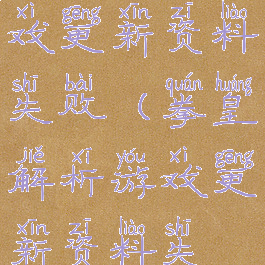 xì gēng xīn zī liào
戏更新资料
shī bài quán huáng
失败（拳皇
jiě xī yóu xì gēng
解析游戏更
xīn zī liào shī
新资料失